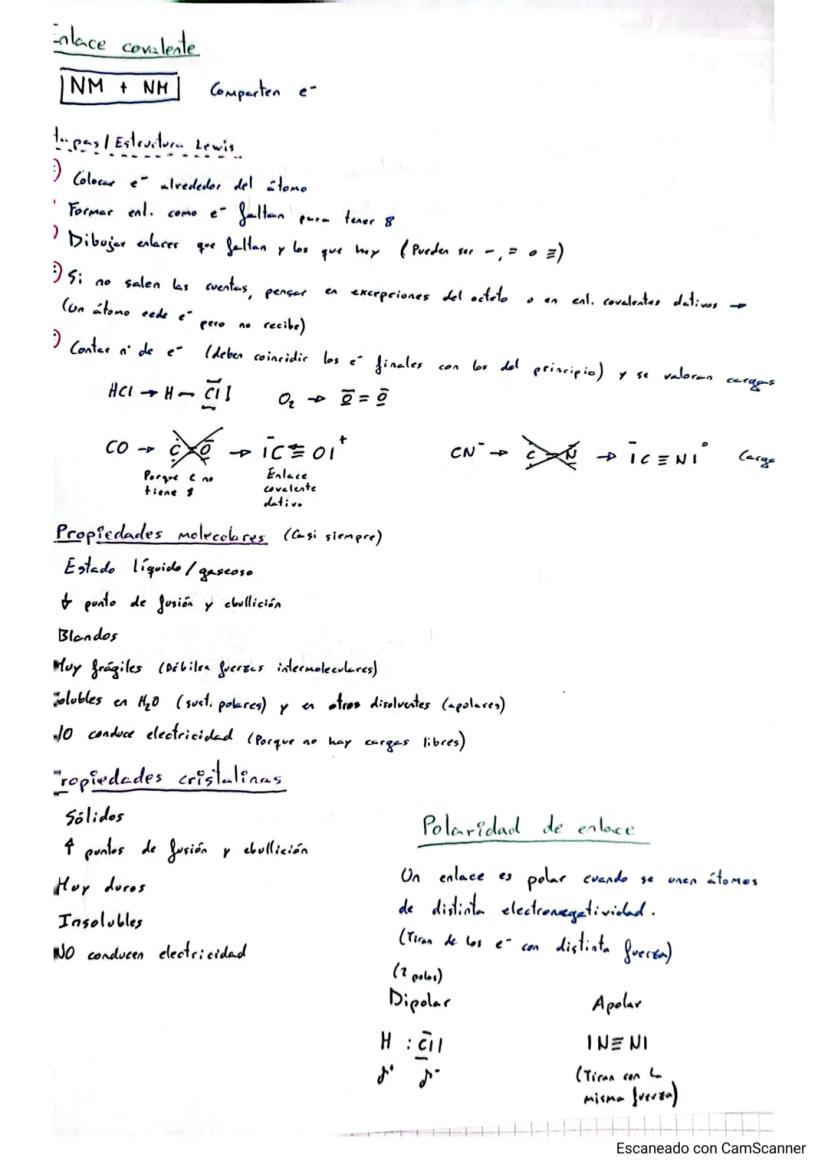 Enlace covalente
NM + NM Comparten e⁻
Etapas / Estructura Lewis
Colocar e⁻ alrededor del átomo
Formar enl. como e⁻ faltan para tener 8
Dibujar enlaces que faltan y los que hay (Pueden ser -, = o ≡)
Si no salen las cuentas, pensar en excepciones del octeto o en enl. covalentes dativos →
(Un átomo cede e⁻ pero no recibe)
Contar nº de e⁻ (deben coincidir los e⁻ finales con los del principio) y se valoran cargas
HCl → H – C̅l̲| O₂ → O̅ = O̅
CO → C O → |C ≡ O|⁺ CN⁻ → C N → |C ≡ N|° Carga
Porque C no tiene 8
Enlace covalente dativo
Propiedades moleculares (Casi siempre)
Estado líquido / gaseoso
↓ punto de fusión y ebullición
Blandos
Muy frágiles (Débiles fuerzas intermoleculares)
Solubles en H₂O (sust. polares) y en otros disolventes (apolares)
NO conduce electricidad (Porque no hay cargas libres)
Propiedades cristalinas
Sólidos
↑ puntos de fusión y ebullición
Muy duros
Insolubles
NO conducen electricidad
Polaridad de enlace
Un enlace es polar cuando se unen átomos
de distinta electronegatividad.
(Tiran de los e⁻ con distinta fuerza)
(2 polos)
Dipolar Apolar
H : C̅l̲| |N≡N|
δ⁺ δ⁻ (Tiran con la
misma fuerza)
Escaneado con CamScanner